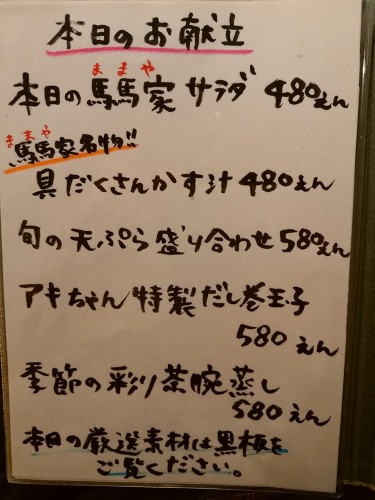 本日のお献立
ままや
本日の馬馬家サラダ 480えん
ままや
馬馬家名物!!
具だくさんかす汁 480えん
旬の天ぷら盛り合わせ 580えん
アキちゃん特製だし巻玉子
580えん
季節の彩り茶腕蒸し
580えん
本日の厳選素材は黒板を
ご覧ください。